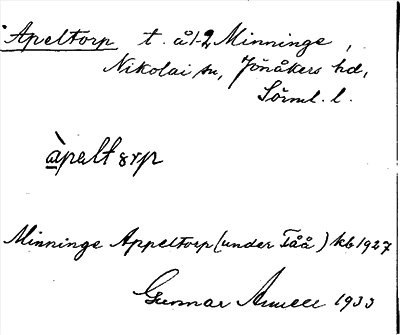 Apeltorp t. å 1-2 Minninge,
Nikolai sn, Jönåkers hd,
Sörml. l.
àpaltꞩrp
Minninge Appeltorp (under Tåå) kb 1927
Gunnar 1933